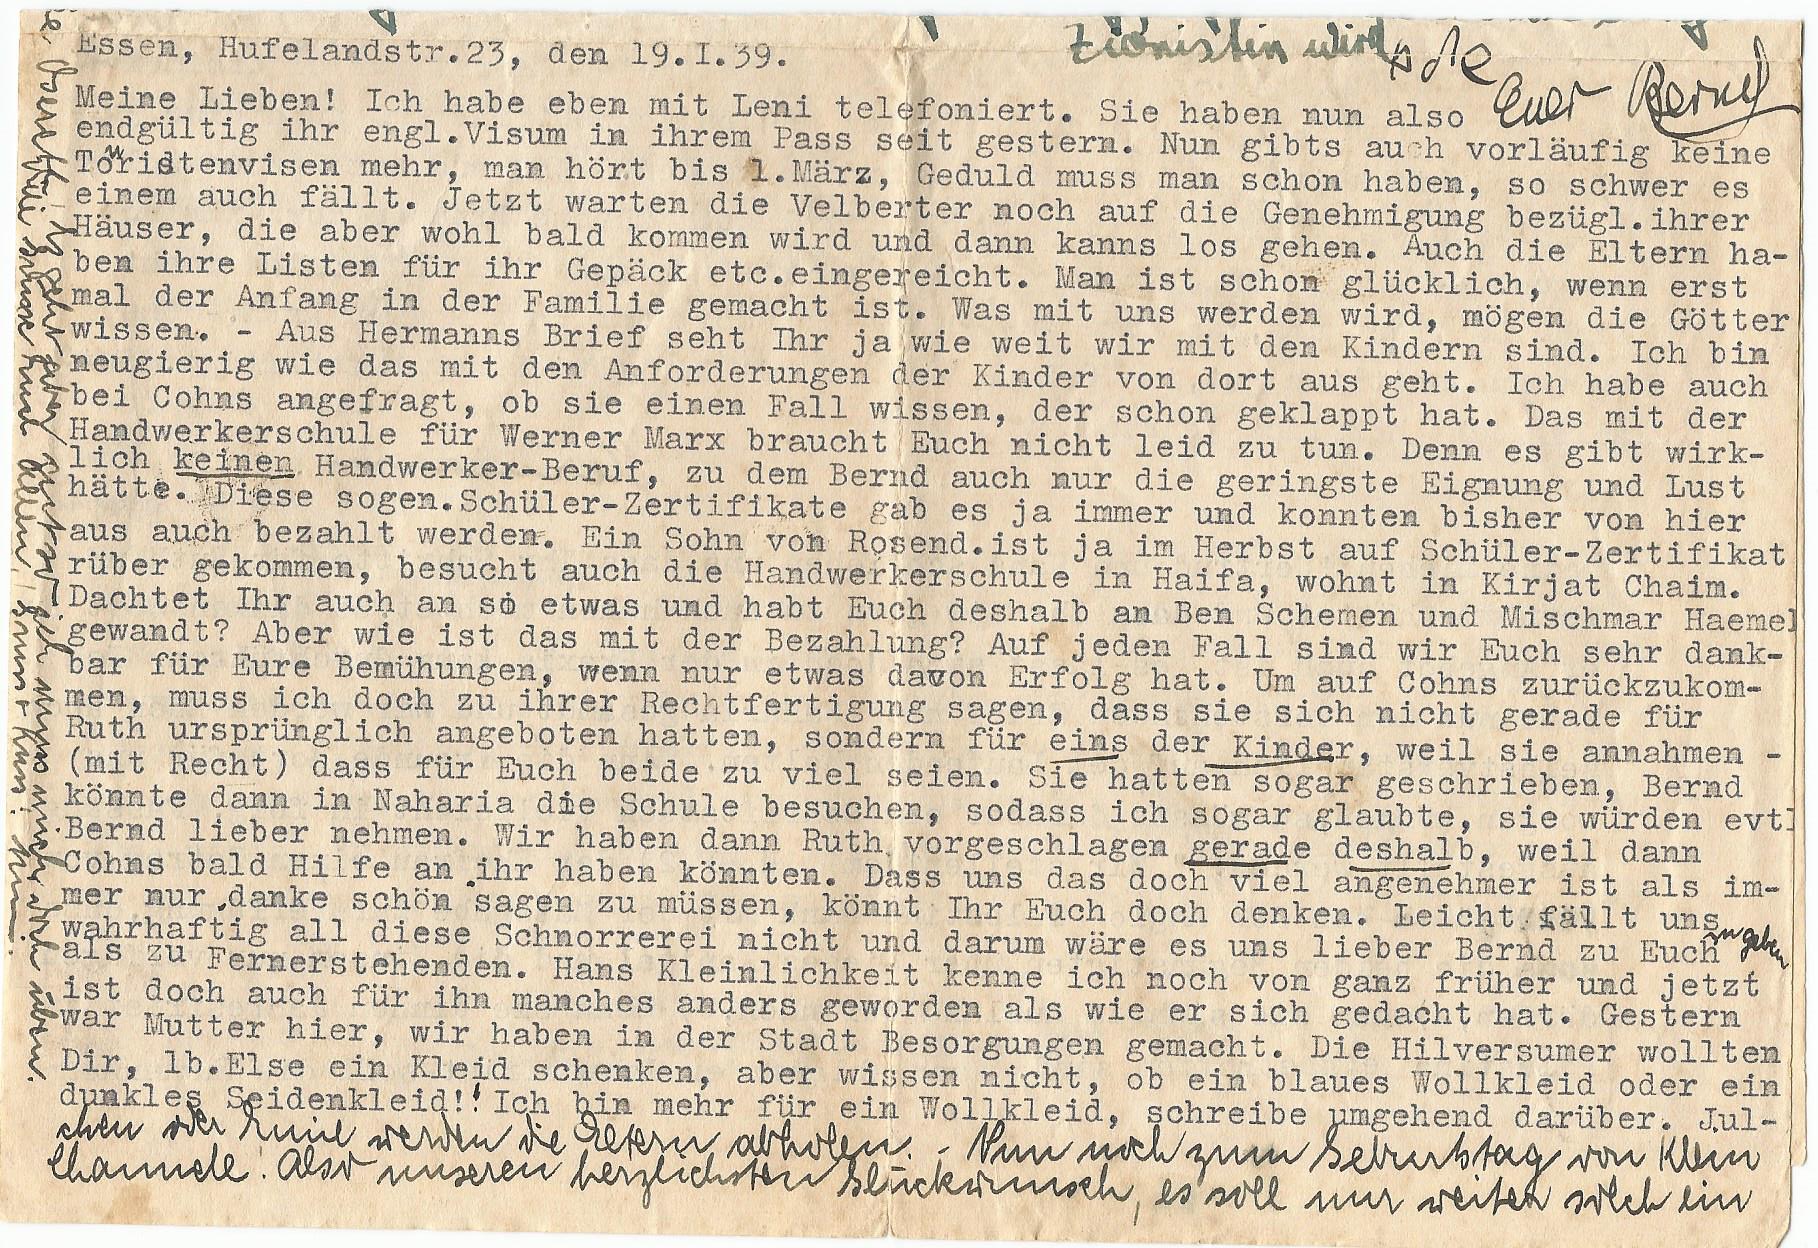 Zionistin wird
Euer Bernd
Essen, Hufelandstr.23, den 19.I.39.
Meine Lieben! Ich habe eben mit Leni telefoniert. Sie haben nun also
endgültig ihr engl.Visum in ihrem Pass seit gestern. Nun gibts auch vorläufig keine
Touristenvisen mehr, man hört bis 1.März, Geduld muss man schon haben, so schwer es
einem auch fällt. Jetzt warten die Velberter noch auf die Genehmigung bezügl.ihrer
Häuser, die aber wohl bald kommen wird und dann kanns los gehen. Auch die Eltern ha-
ben ihre Listen für ihr Gepäck etc.eingereicht. Man ist schon glücklich, wenn erst
mal der Anfang in der Familie gemacht ist. Was mit uns werden wird, mögen die Götter
wissen. - Aus Hermanns Brief seht Ihr ja wie weit wir mit den Kindern sind. Ich bin
neugierig wie das mit den Anforderungen der Kinder von dort aus geht. Ich habe auch
bei Cohns angefragt, ob sie einen Fall wissen, der schon geklappt hat. Das mit der
Handwerkerschule für Werner Marx braucht Euch nicht leid zu tun. Denn es gibt wirk-
lich keinen Handwerker-Beruf, zu dem Bernd auch nur die geringste Eignung und Lust
hätte. Diese sogen.Schüler-Zertifikate gab es ja immer und konnten bisher von hier
aus auch bezahlt werden. Ein Sohn von Rosend.ist ja im Herbst auf Schüler-Zertifikat
rüber gekommen, besucht auch die Handwerkerschule in Haifa, wohnt in Kirjat Chaim.
Dachtet Ihr auch an so etwas und habt Euch deshalb an Ben Schemen und Mischmar Haemel
gewandt? Aber wie ist das mit der Bezahlung? Auf jeden Fall sind wir Euch sehr dank-
bar für Eure Bemühungen, wenn nur etwas davon Erfolg hat. Um auf Cohns zurückzukom-
men, muss ich doch zu ihrer Rechtfertigung sagen, dass sie sich nicht gerade für
Ruth ursprünglich angeboten hatten, sondern für eins der Kinder, weil sie annahmen -
(mit Recht) dass für Euch beide zu viel seien. Sie hatten sogar geschrieben, Bernd
könnte dann in Naharia die Schule besuchen, sodass ich sogar glaubte, sie würden evtl
Bernd lieber nehmen. Wir haben dann Ruth vorgeschlagen gerade deshalb, weil dann
Cohns bald Hilfe an ihr haben könnten. Dass uns das doch viel angenehmer ist als im-
mer nur danke schön sagen zu müssen, könnt Ihr Euch doch denken. Leicht fällt uns
wahrhaftig all diese Schnorrerei nicht und darum wäre es uns lieber Bernd zu Euch zu geben
als zu Fernerstehenden. Hans Kleinlichkeit kenne ich noch von ganz früher und jetzt
ist doch auch für ihn manches anders geworden als wie er sich gedacht hat. Gestern
war Mutter hier, wir haben in der Stadt Besorgungen gemacht. Die Hilversumer wollten
Dir, lb.Else ein Kleid schenken, aber wissen nicht, ob ein blaues Wollkleid oder ein
dunkles Seidenkleid!! Ich bin mehr für ein Wollkleid, schreibe umgehend darüber. Jul-
chen oder Emil werden die Eltern abholen. - Nun noch zum Geburtstag von Klein
Channele! Also unseren herzlichsten Glückwunsch, es soll nur weiter solch ein